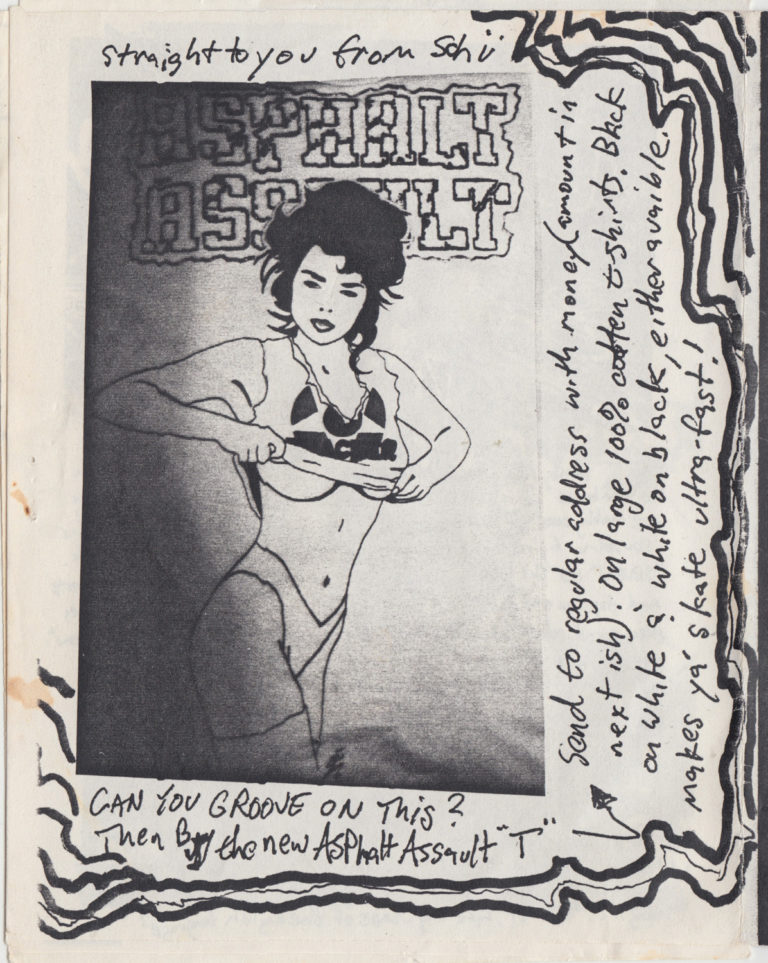 straight to you from Schii
ASPHALT
ASSAULT
CAN YOU GROOVE ON This?
Then Buy the new Asphalt Assault "T"
Send to regular address with money (amount in
next ish). On large 100% cotten t-shirts. Black
on white & white on black, either avaible.
Makes ya' skate ultra-fast!